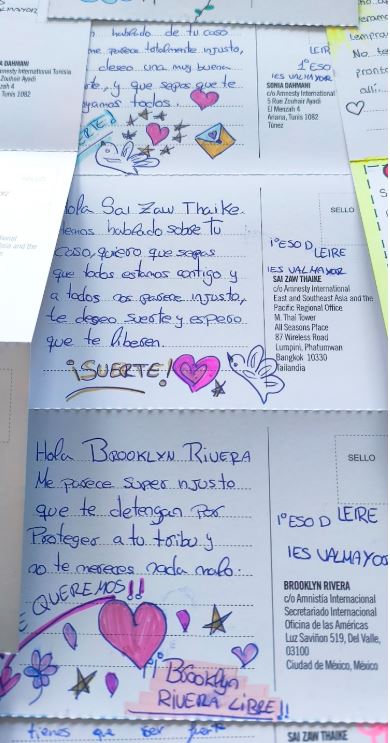 A DAHMANI
Amnesty International Tunisia
Zouhair Ayadi
4
Tunis 1082
hablado de tu caso
me parece totalmente injusto,
deseo una muy buena
y que sepas que te
todos.
LEIRE
1º ESO
IES VALMAYOR
SONIA DAHMANI
c/o Amnesty International
5 Rue Zouhair Ayadi
El Menzah 4
Ariana, Tunis 1082
Túnez
No te
pronto
allí.
Hola Sai Zaw Thaike.
hemos hablado sobre tu
caso, quiero que sepas
que todos estamos contigo y
a todos nos parece injusto,
te deseo suerte y espero
que te liberen.
¡SUERTE!
SELLO
1º ESO D LEIRE
IES VALMAYOR
SAI ZAW THAIKE
c/o Amnesty International
East and Southeast Asia and the
Pacific Regional Office
M. Thai Tower
All Seasons Place
87 Wireless Road
Lumpini, Phatumwan
Bangkok 10330
Tailandia
Hola BROOKLYN RIVERA
Me parece super injusto
que te detengan por
Proteger a tu tribu y
no te mereces nada malo.
QUEREMOS!!
Brooklyn
RIVERA LIBRE!!
SELLO
1º ESO D LEIRE
IES VALMAYOR
BROOKLYN RIVERA
c/o Amnistía Internacional
Secretariado Internacional
Oficina de las Américas
Luz Saviñon 519, Del Valle,
03100
Ciudad de México, México
tienes que ser fuerte
SAI ZAW THAIKE